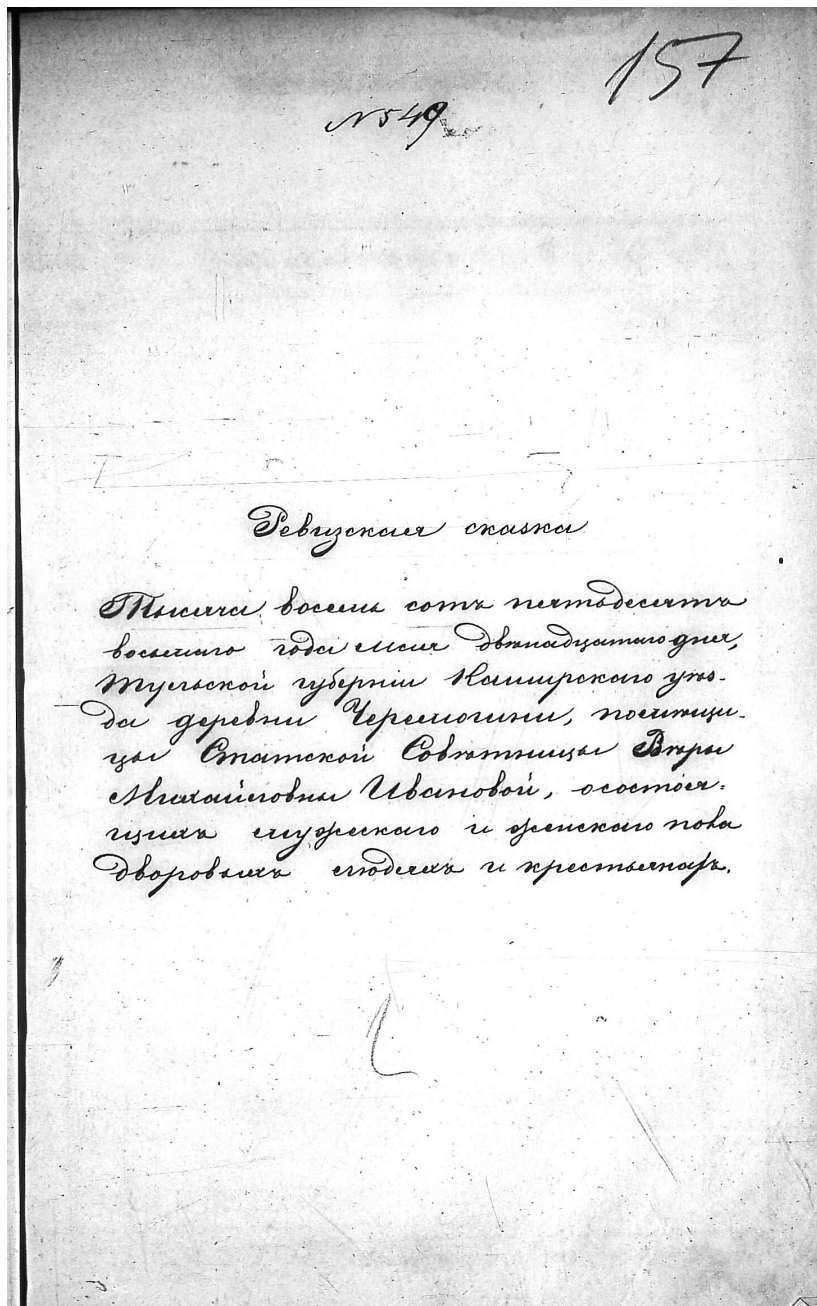 157
N 549
Ревизская сказка
Тысяча восемь сотъ пятьдесятъ
восьмаго года мая двѣнадцатаго дня,
Тульской губерніи Каширскаго уѣз-
да деревни Черемошни, помѣщи-
цы Статской Совѣтницы Вѣры
Михайловны Ивановой, осостоя-
щихъ мужескаго и женскаго пола
дворовыхъ людяхъ и крестьянахъ.